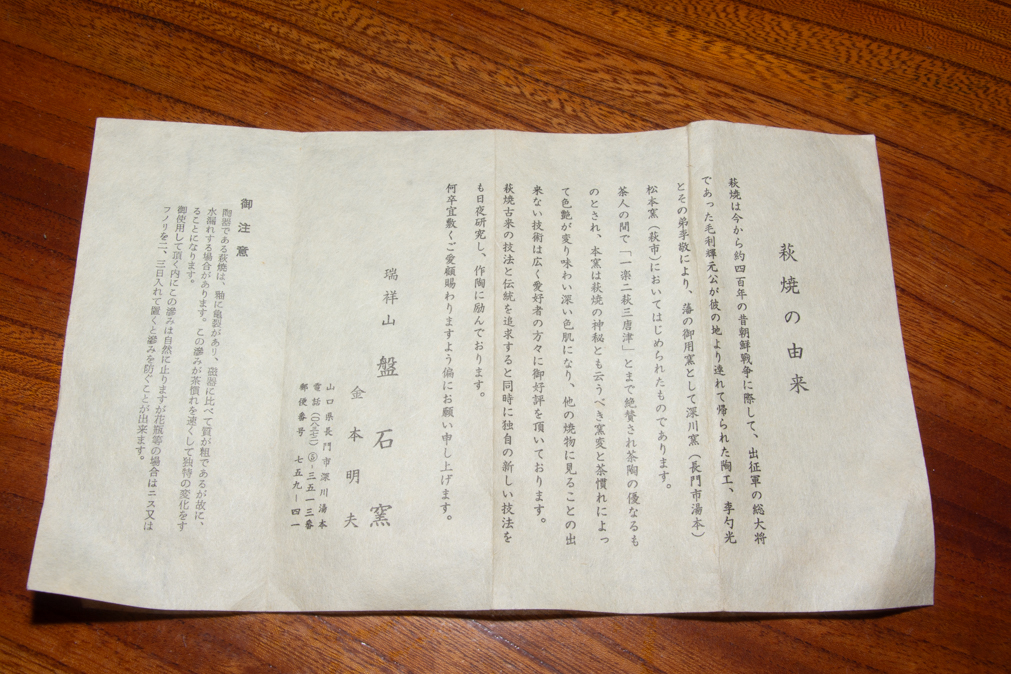 萩焼の由来
萩焼は今から約四百年の昔朝鮮戦争に際して、出征軍の総大将
であった毛利輝元公が彼の地より連れて帰られた陶工、李勺光
とその弟李敬により、藩の御用窯として深川窯(長門市湯本)
松本窯(萩市)においてはじめられたものであります。
茶人の間で「一楽二萩三唐津」とまで絶賛され茶陶の優なるも
のとされ、本窯は萩焼の神秘とも云うべき窯変と茶慣れによっ
て色艶が変り味わい深い色肌になり、他の焼物に見ることの出
来ない技術は広く愛好者の方々に御好評を頂いております。
萩焼古来の技法と伝統を追求すると同時に独自の新しい技法を
も日夜研究し、作陶に励んでおります。
何卒宜敷くご愛顧賜わりますよう偏にお願い申し上げます。
瑞祥山 盤石窯
金本明夫
山口県長門市深川湯本
電話(〇八三七二)⑤-三五一三番
郵便番号 七五九-四一
御注意
陶器である萩焼は、釉に亀裂があり、磁器に比べて質が粗であるが故に、
水漏れする場合があります。この滲みが茶慣れを速くして独特の変化をす
ることになります。
御使用して頂く内にこの滲みは自然に止りますが花瓶等の場合はニス又は
フノリを二、三日入れて置くと滲みを防ぐことが出来ます。